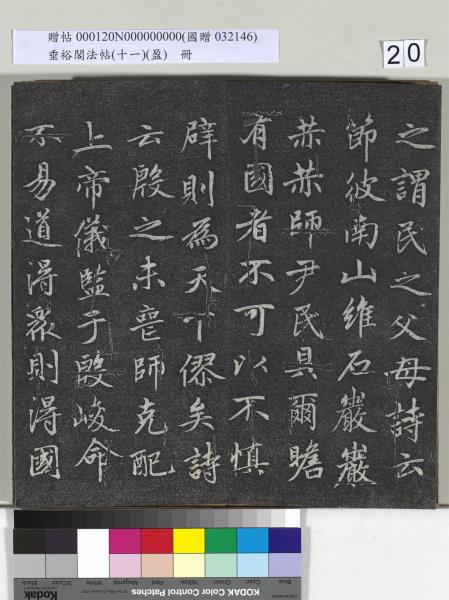 贈帖 000120N000000000(國贈 032146)
垂裕閣法帖(十一)(盈) 冊
20
之謂民之父母詩云
節彼南山維石巖巖
恭恭師尹民具爾瞻
有國者不可以不慎
辟則為天下僇矣詩
云殷之未喪師克配
上帝儀監于殷峻命
不易道淂眾則淂國
Blue
Cyan
Green
Yellow
Red
Magenta
White
3/Color
Black
KODAK Color Control Patches